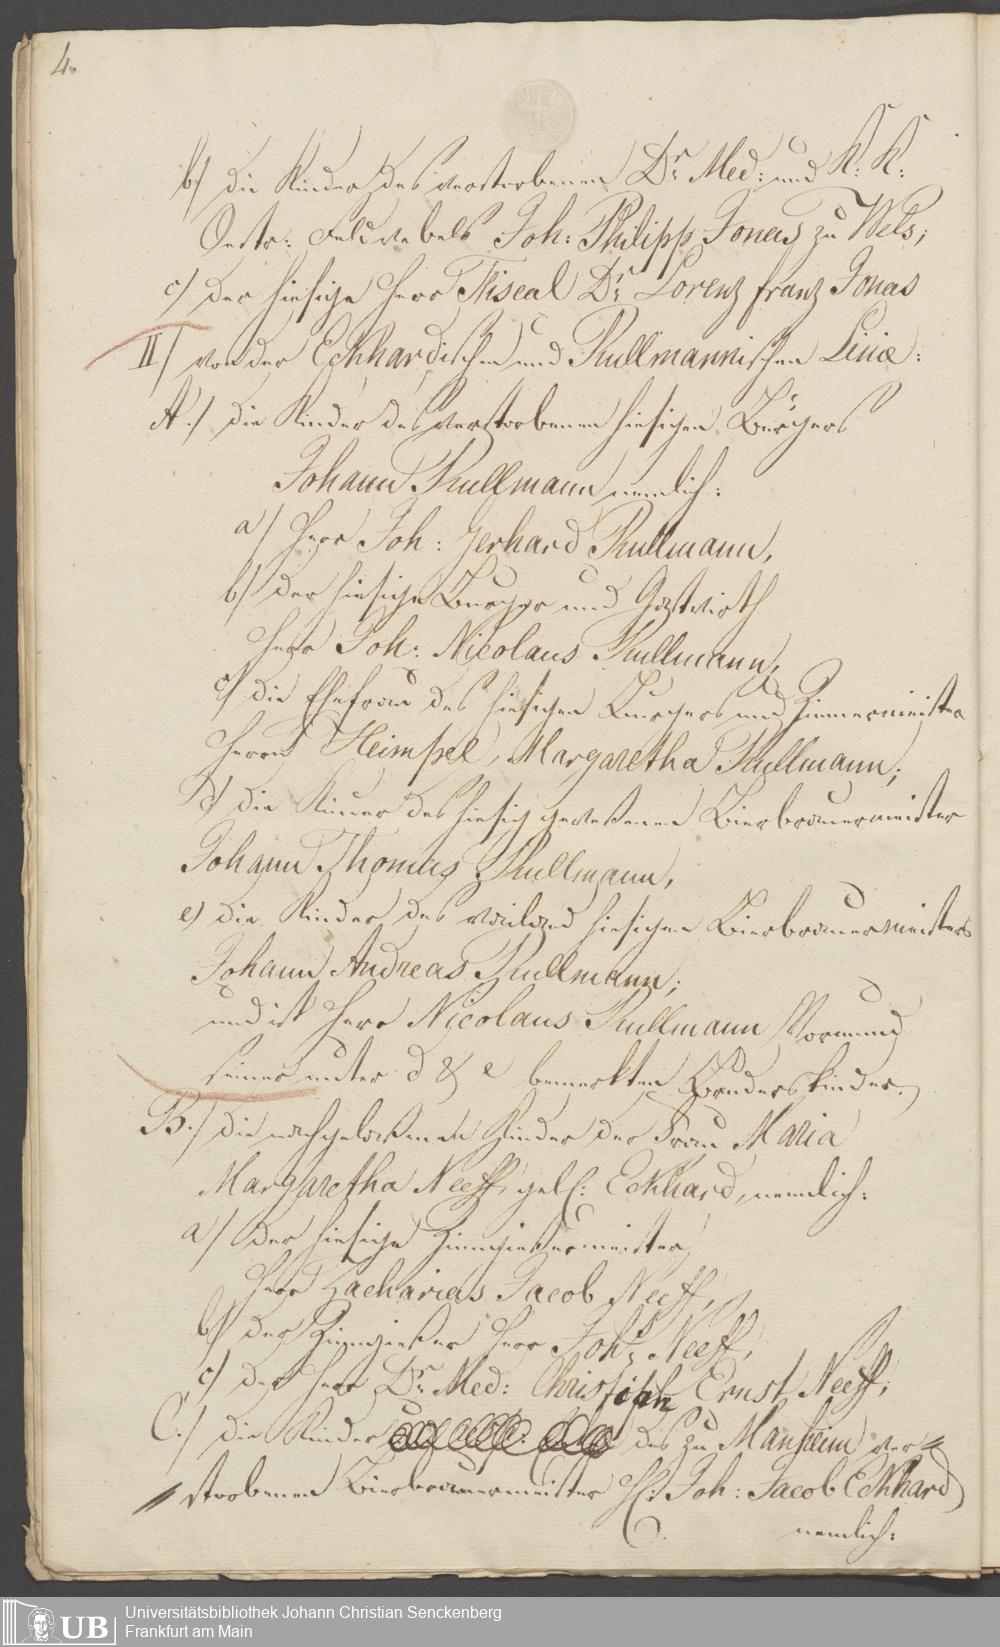 4.
b) die Kinder des verstorbenen Dr. Med: und K. K:
Oestr: Feldwebels Joh: Philipp Jonas zu Wels;
c) der hiesige Herr Fiscal Dr. Lorenz franz Jonas
II) von der Eckhardischen und Kullmannischen Linie:
A.) die Kinder des verstorbenen hiesigen Bürgers
Johann Kullmann nemlich:
a) Herr Joh: Gerhard Kullmann,
b) der hiesige Burger und Gastwirth
Herr Joh: Nicolaus Kullmann,
c) die Ehefrau des hiesigen Burgers und Zimmermeister
Herrn Heimpel, Margaretha Kullmann;
d) die Kinder des hiesig gewesenen Bierbrauermeister
Johann Thomas Kullmann,
e) die Kinder des weiland hiesigen Bierbrauermeisters
Johann Andreas Kullmann;
und ist Herr Nicolaus Kullmann Vormund
seiner unter d & e bemerkten Bruderskinder.
B.) die nachgelaßenen Kinder der Frau Maria
Margaretha Neeff, geb: Eckhard, nemlich:
a) der hiesige Zinngießermeister,
Herr Zacharias Jacob Neeff,
b) der Zinngießer Herr Joh: Neeff,
c) der Herr Dr. Med: Christian Ernst Neeff;
C.) die Kinder des zu Manheim ver=
storbenen Bierbrauermeister H: Joh: Jacob Eckhard
nemlich:
UB
Universitätsbibliothek Johann Christian Senckenberg
Frankfurt am Main